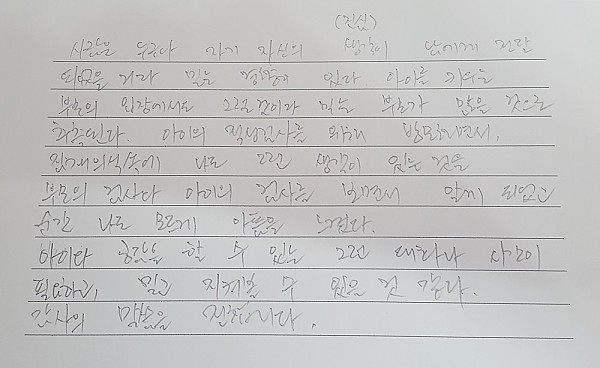 (진심)
사람들은 누구나 자기 자신의 생각이 남에게 전달
되었을 거라 믿는 경향이 있다. 아이를 키우는
부모의 입장에서도 그럴것이라 믿는 부모가 많을 것으로
추측된다. 아이의 적성검사를 위해 방문하면서,
잠재의식속에 나도 그런 생각이 있는 것을
부모의 검사다 아이의 검사를 보면서 알게 되었고
순간 나도 모르게 아픔을 느꼈다.
아이와 공감을 할 수 있는 그런 대화나 시간이
필요하고, 믿고 지켜볼 수 있을 것 같다.
감사의 말씀을 전합니다.